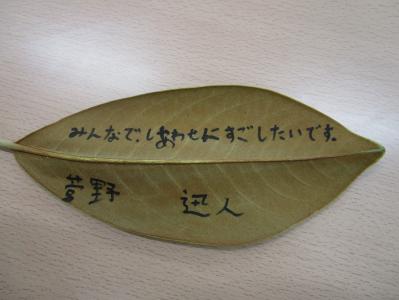 みんなで、しあわせにすごしたいです。
菅野 迅人